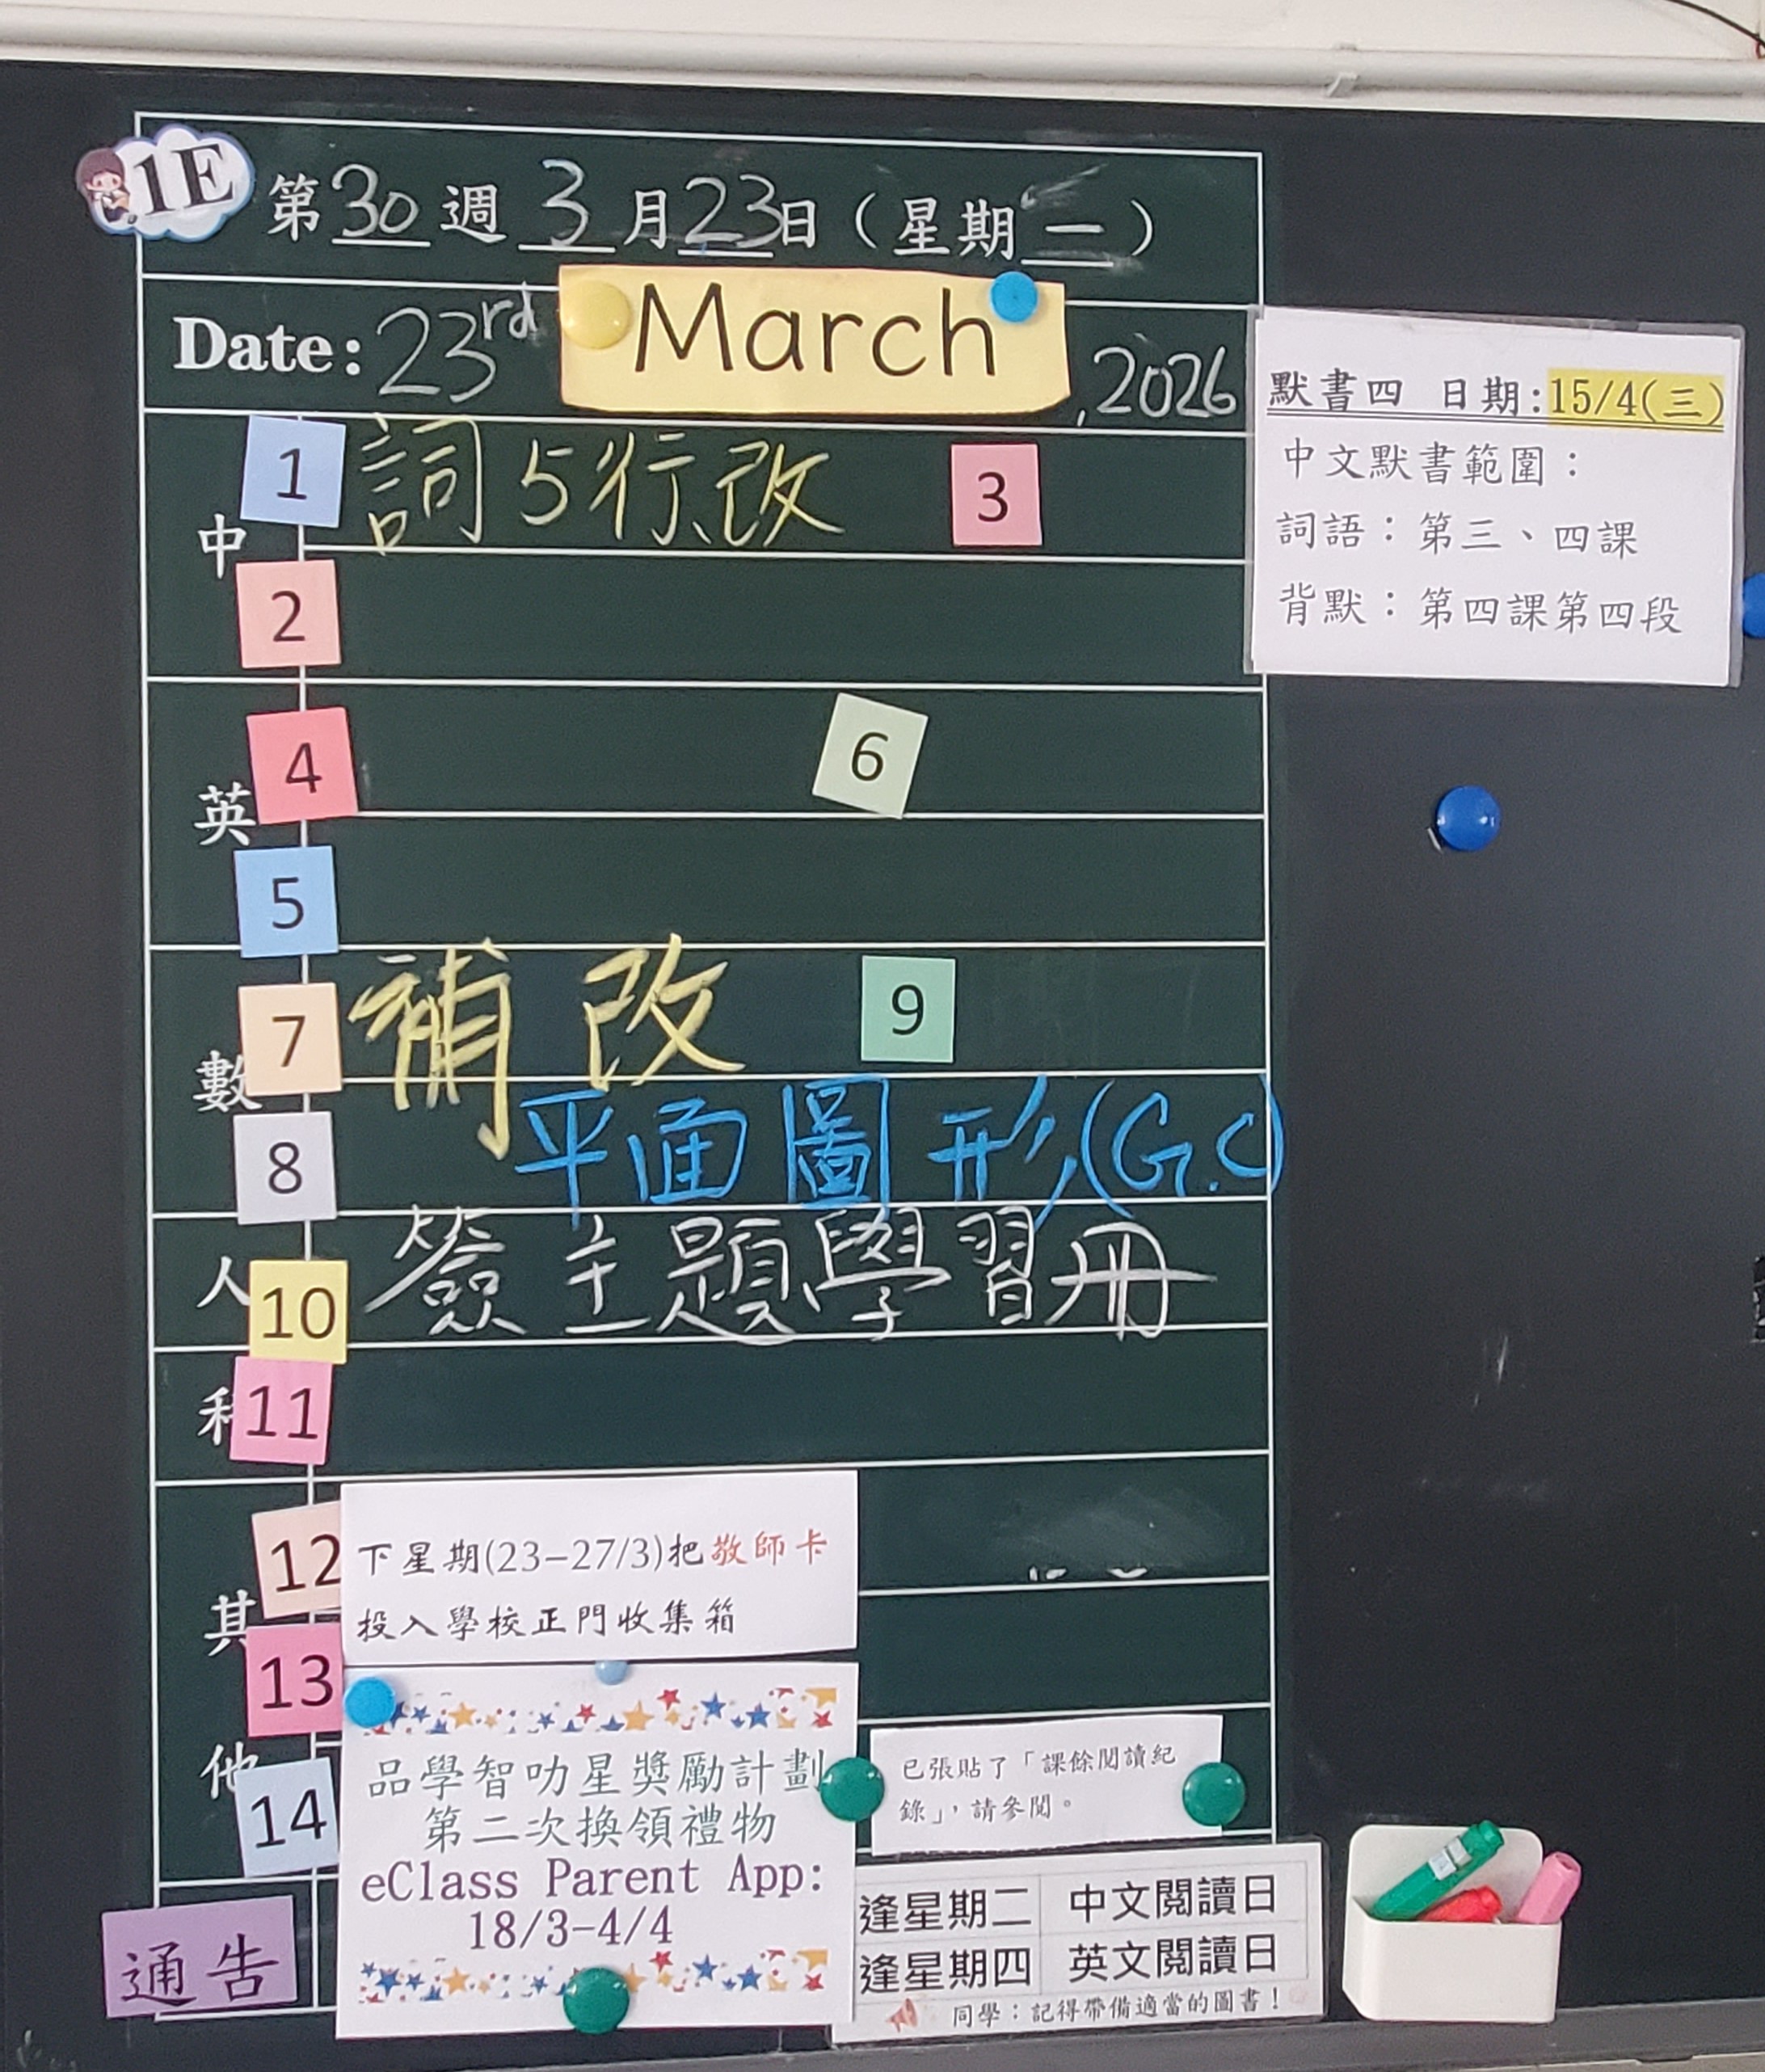 1E
第30週3月23日（星期一）
Date: 23rd March, 2026
中
1 詞5行改 3
2
英
4 6
5
數
7 補改 9
8 平面圖形(G.C)
人
10 簽主題學習冊
科
11
其他
12
13
14
下星期(23–27/3)把敬師卡
投入學校正門收集箱
品學智叻星獎勵計劃
第二次換領禮物
eClass Parent App:
18/3-4/4
已張貼了「課餘閱讀紀
錄」，請參閱。
逢星期二 中文閱讀日
逢星期四 英文閱讀日
同學：記得帶備適當的圖書！
通告
默書四 日期:15/4(三)
中文默書範圍：
詞語：第三、四課
背默：第四課第四段